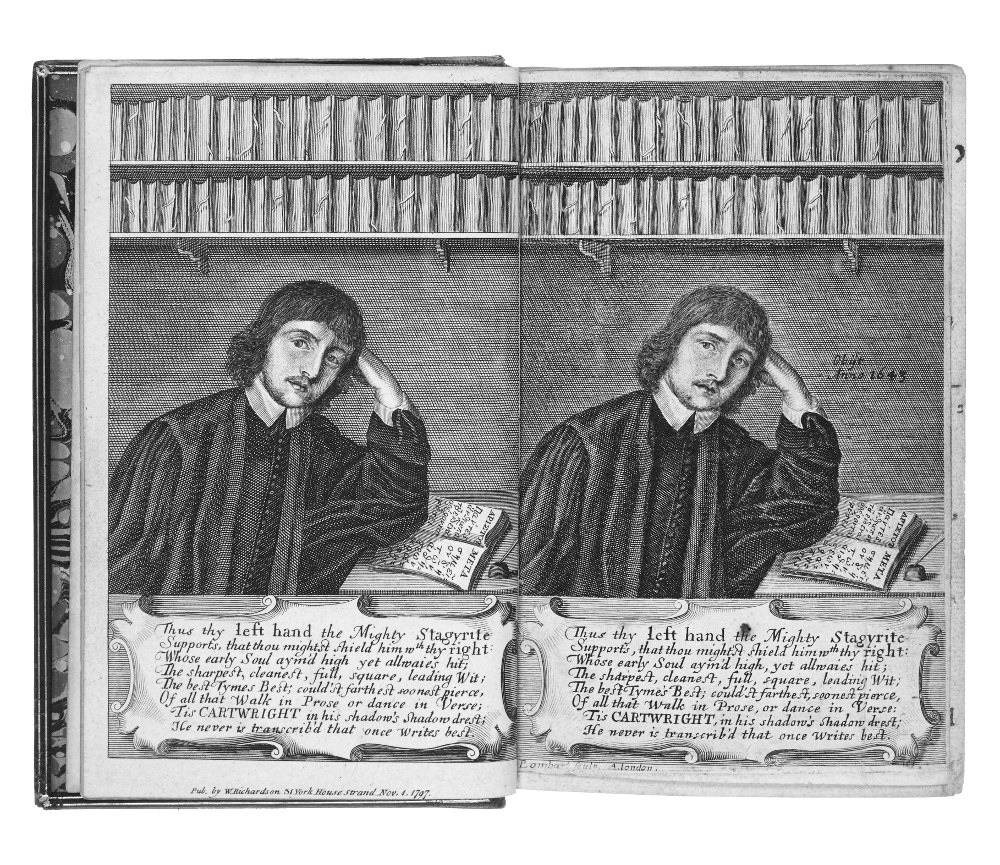 Thus thy left hand the Mighty Stagyrite
Supports, that thou mightst shield him wth thy right:
Whose early Soul aym'd high yet allwaies hit;
The sharpest, cleanest, full, square, leading Wit;
The best Tymes Best; could'st farthest soonest pierce,
Of all that Walk in Prose or dance in Verse;
Tis CARTWRIGHT in his shadow's Shadow drest;
He never is transcrib'd that once Writes best.
Pub. by W. Richardson 31 York House Strand Nov. 1. 1797.
Obijt
Anno 1643
ARISTOT META
Thus thy left hand the Mighty Stagyrite
Supports, that thou mightst shield him wth thy right:
Whose early Soul aym'd high, yet allwaies hit;
The sharpest, cleanest, full, square, leading Wit;
The best Tyme's Best; could'st farthest, soonest pierce,
Of all that Walk in Prose, or dance in Verse:
Tis CARTWRIGHT, in his shadow's shadow drest;
He never is transcrib'd that once Writes best.
Lombar sculp. A. london.